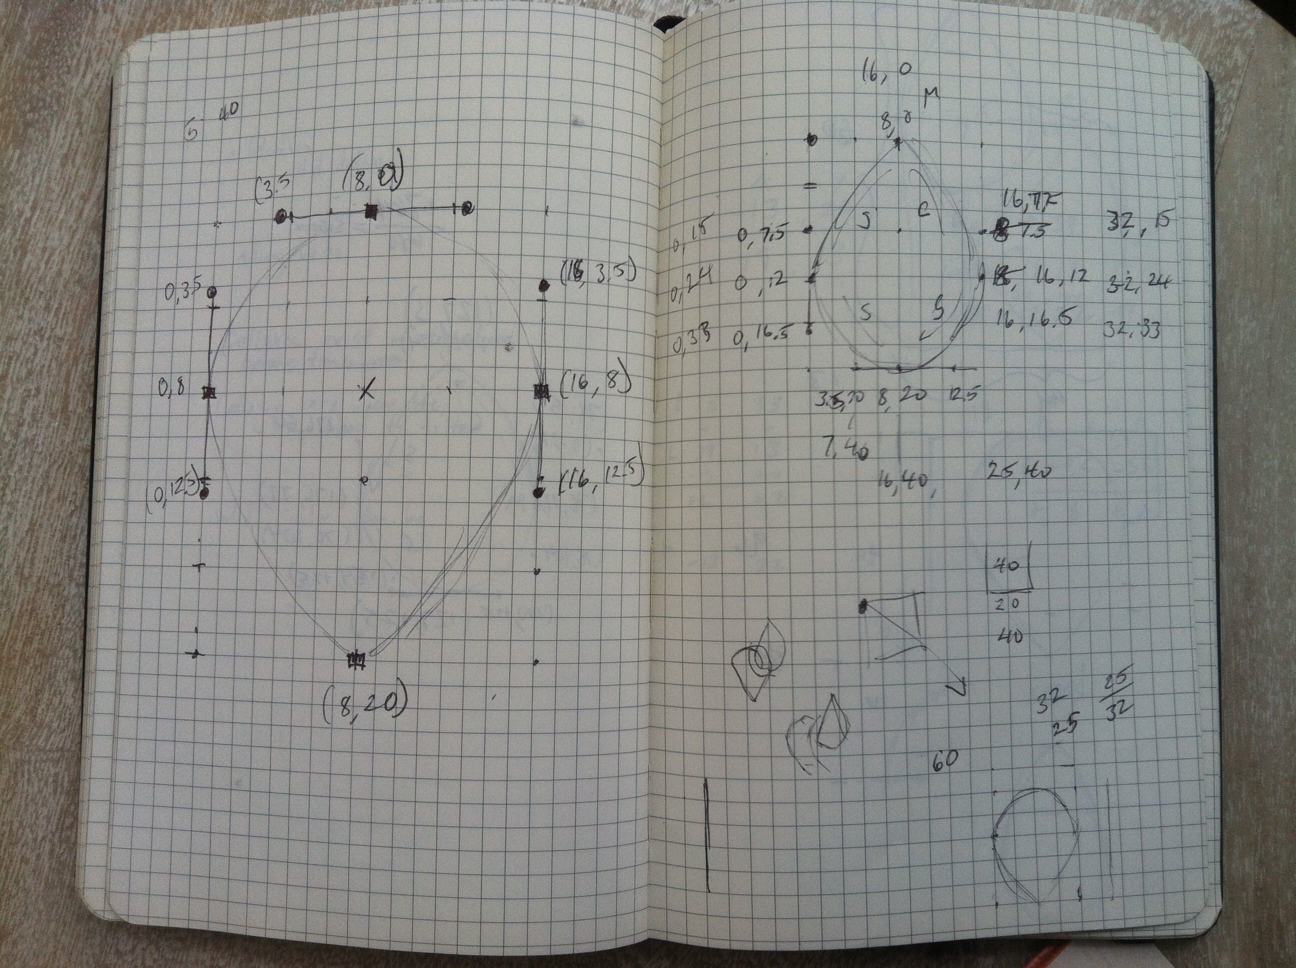 40
(3.5
(8, 0)
0,3.5
(16, 3.5)
0,8
(16, 8)
(0,12.5)
(16, 12.5)
(8,20)
16, 0
M
8,0
16, 7.5
32, 15
0,15
0,7.5
S
C
0,24
0,12
16,12
32,24
0,33
0,16.5
S
S
16,16.5
32,33
8,20
12.5
7,40
16,40,
25,40
40
20
40
32
25
25
32
60